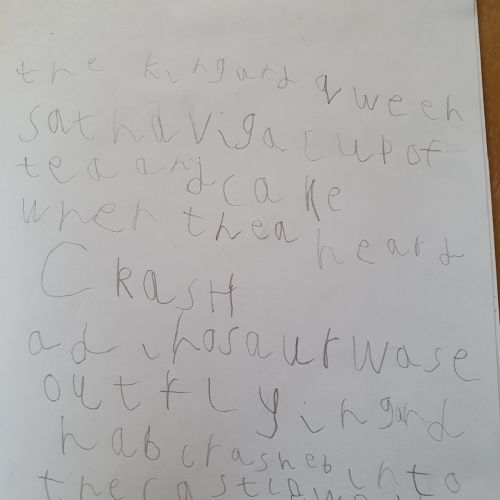 the kingand qween
sat haviga cup of
tea and cake
when thea heard
CRasH
a dihosaur wase
out flyingand
hab crasheb into
the castle